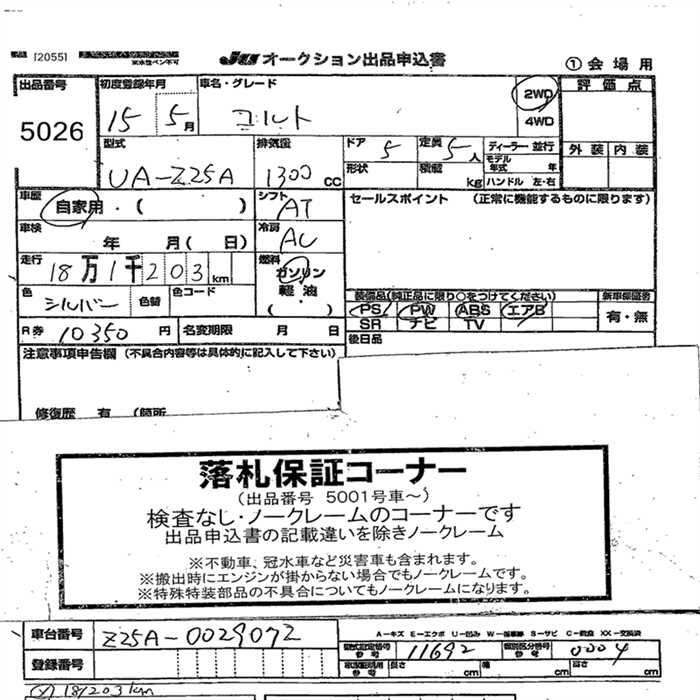 [2055]
JU オークション出品申込書
① 会場用
出品番号
5026
初度登録年月
15 5月
車名・グレード
コルト
2WD
4WD
評価点
型式
UA-Z25A
排気量
1300cc
ドア
5
定員
5人
形状
積載
kg
ディーラー・並行
モデル年式 年
ハンドル 左・右
外装 内装
車歴
自家用・( )
シフト
AT
セールスポイント (正常に機能するものに限ります)
車検
年 月( 日)
冷房
AC
走行
18万1千203km
燃料
ガソリン
軽油
( ・ )
色
シルバー
色替
色コード
装備品(純正品に限り○をつけてください)
新車保証書
PS PW ABS エアB
有・無
SR ナビ TV
R券
10350円
名変期限 月 日
後日品
注意事項申告欄 (不具合内容等は具体的に記入して下さい)
修復歴 有 (箇所
落札保証コーナー
(出品番号 5001号車~)
検査なし・ノークレームのコーナーです
出品申込書の記載違いを除きノークレーム
※不動車、冠水車など災害車も含まれます。
※搬出時にエンジンが掛からない場合でもノークレームです。
※特殊特装部品の不具合についてもノークレームになります。
車台番号
Z25A-0029072
A-キズ E-エクボ U-凹み S-サビ C-腐食 XX-交換済
型式指定番号
参考
11692
類別区分番号
参考
0004
登録番号
参考
長さ
cm
幅
cm
高さ
cm
181203km